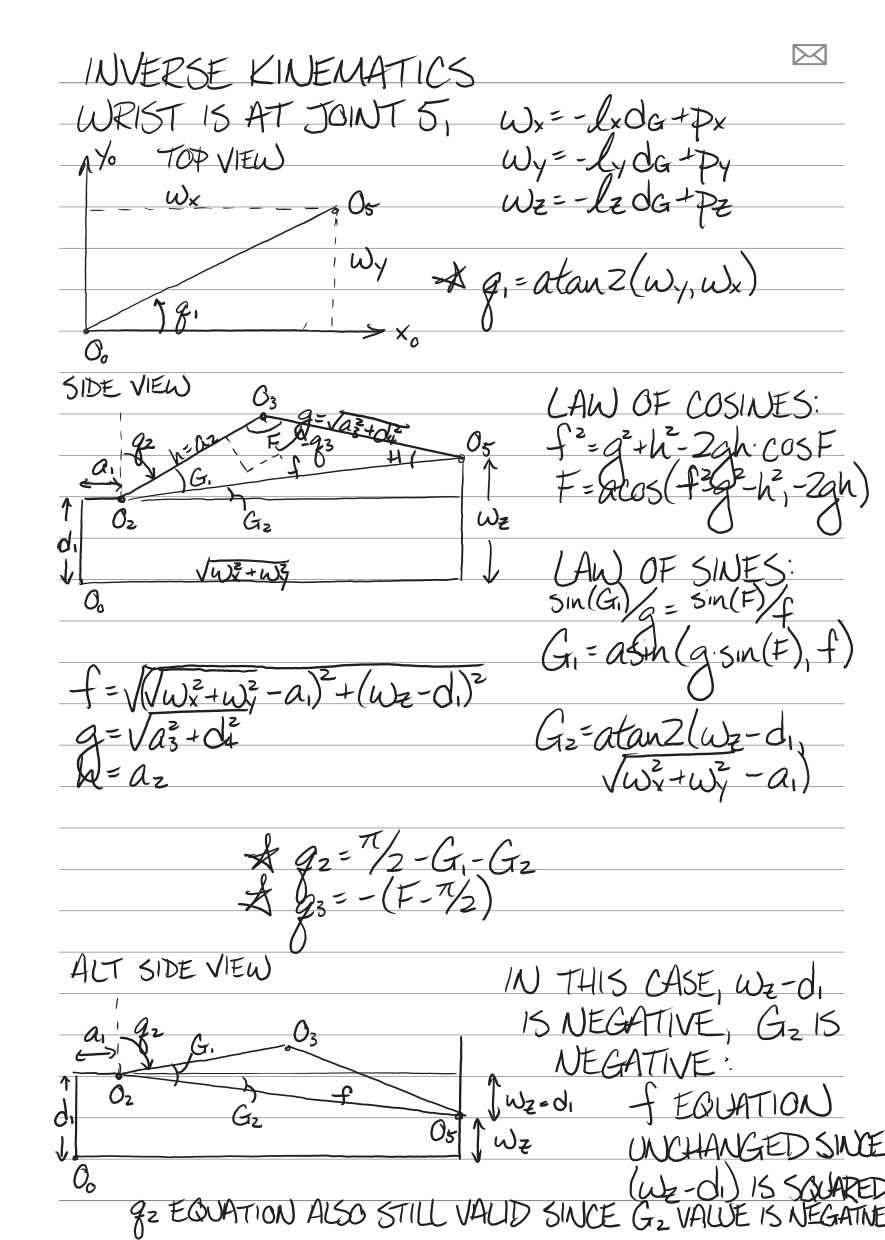 INVERSE KINEMATICS
WRIST IS AT JOINT 5,
wx = -lx dG + px
wy = -ly dG + py
wz = -lz dG + pz
Y₀ TOP VIEW
wx
O₅
wy
q₁
O₀
x₀
☆ q₁ = atan2(wy, wx)
SIDE VIEW
O₃
q₂
h=a₂
g=√a₃²+d₄²
F
-q₃
O₅
a₁
G₁
f
H
O₂
G₂
d₁
wz
√wx²+wy²
O₀
LAW OF COSINES:
f² = g² + h² - 2gh · cos F
F = acos(f²-g²-h², -2gh)
LAW OF SINES:
sin(G₁)/g = sin(F)/f
G₁ = asin(g·sin(F), f)
f = √(√wx²+wy² - a₁)² + (wz-d₁)²
g = √a₃²+d₄²
h = a₂
G₂ = atan2(wz-d₁,
√wx²+wy² - a₁)
☆ q₂ = π/2 - G₁ - G₂
☆ q₃ = -(F - π/2)
ALT SIDE VIEW
a₁
q₂
G₁
O₃
O₂
G₂
f
d₁
O₅
wz-d₁
wz
O₀
IN THIS CASE, wz-d₁
IS NEGATIVE, G₂ IS
NEGATIVE:
f EQUATION
UNCHANGED SINCE
(wz-d₁) IS SQUARED
q₂ EQUATION ALSO STILL VALID SINCE G₂ VALUE IS NEGATIVE